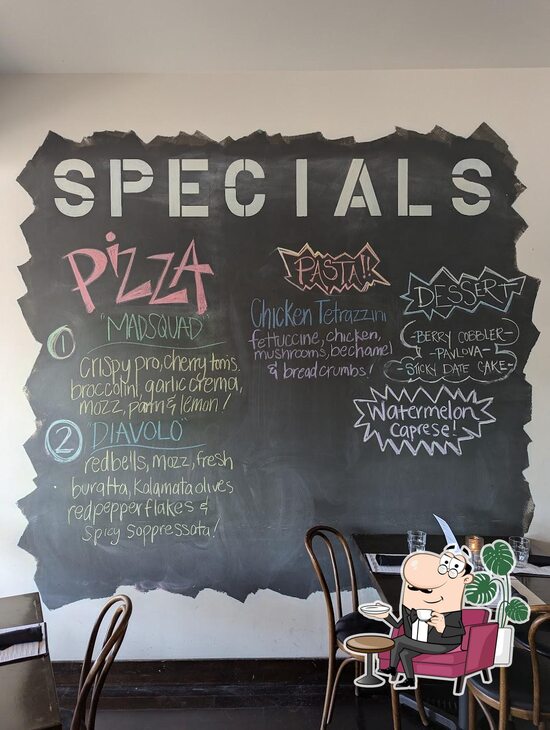 SPECIALS
PIZZA
1 "MADSQUAD"
crispy pro, cherry toms.
broccolini, garlic crema,
mozz, parm & lemon!
2 "DIAVOLO"
red bells, mozz, fresh
buratta, Kalamata olives
red pepper flakes &
spicy soppressata!
PASTA!!
Chicken Tetrazzini
fettuccine, chicken,
mushrooms, bechamel
& bread crumbs!
DESSERT
-BERRY COBBLER-
-PAVLOVA-
-STICKY DATE CAKE-
Watermelon
Caprese!